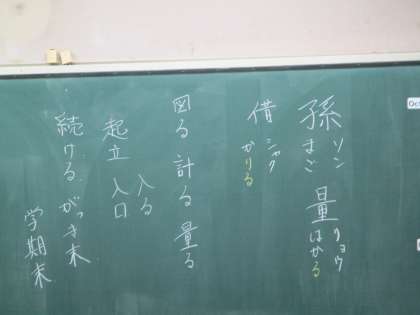 孫 ソン まご 量 リョウ はかる
借 シャク かりる
図る 計る 量る
起立 入る 入口
続ける がっき末
学期末
Oct